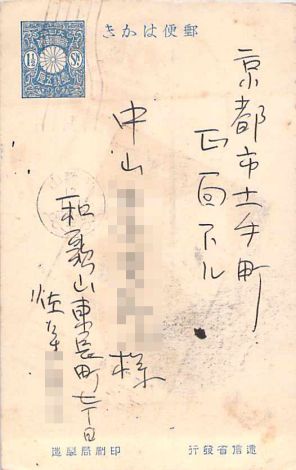 郵便はかき
1½ Sn
京都市土手町
正面下ル
中山
様
和歌山東長町七丁目
佐
逓信省發行
印刷局製造